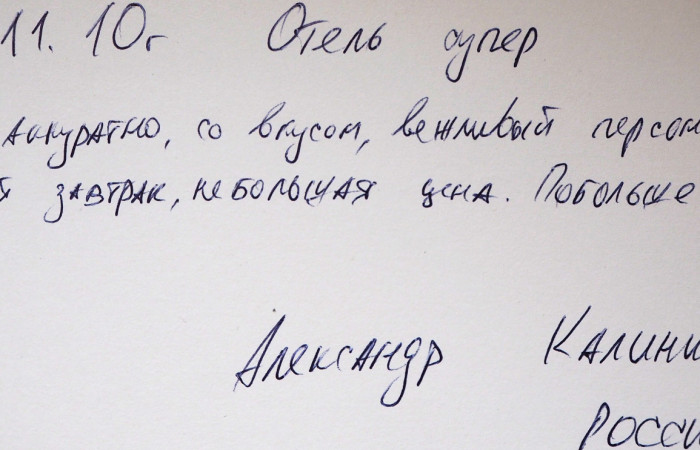 11. 10г Отель супер
Аккуратно, со вкусом, вежливый персон
й завтрак, небольшая цена. Побольше
Александр Калини
Росси